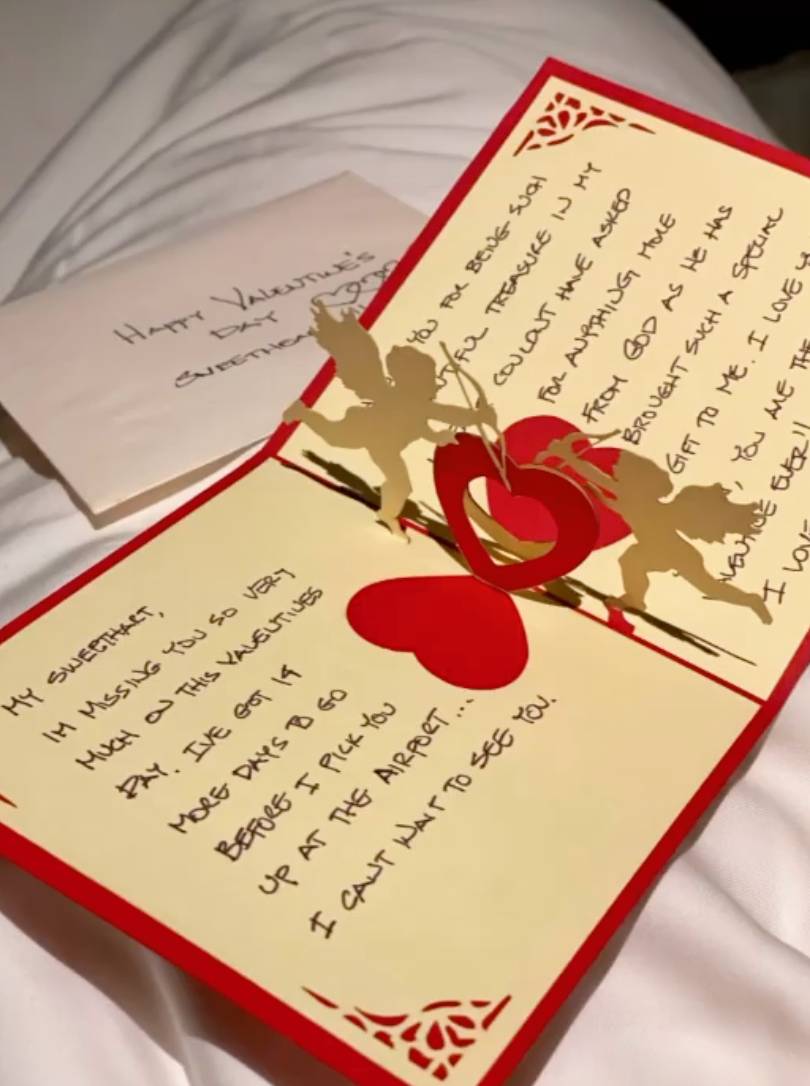 HAPPY VALENTINE'S
DAY
MY SWEETHART,
IM MISSING YOU SO VERY
MUCH ON THIS VALENTINES
DAY. IVE GOT 19
MORE DAYS TO GO
BEFORE I PICK YOU
UP AT THE AIRPORT...
I CANT WAIT TO SEE YOU.
YOU FOR BEING SUCH
TREASURE IN MY
COULDNT HAVE ASKED
FOR ANYTHING MORE
FROM GOD AS HE HAS
BROUGHT SUCH A SPECIAL
GIFT TO ME. I LOVE
, YOU ARE THE
EVER!!
I LOVE